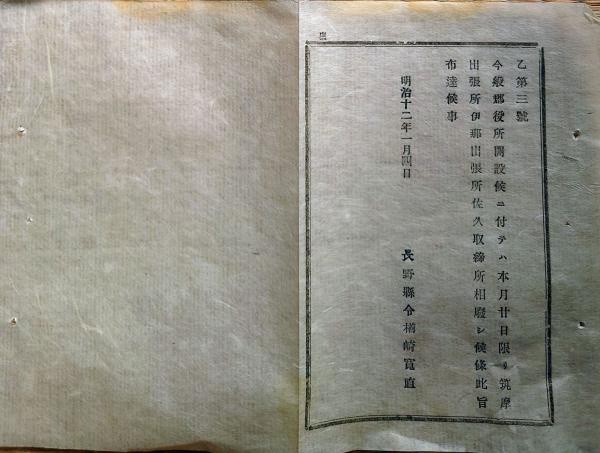 乙第三號
今般郡役所開設候ニ付テハ本月廿日限リ筑摩
出張所伊那出張所佐久取締所相廢シ候條此旨
布達候事
明治十二年一月四日
長野縣令楢崎寛直